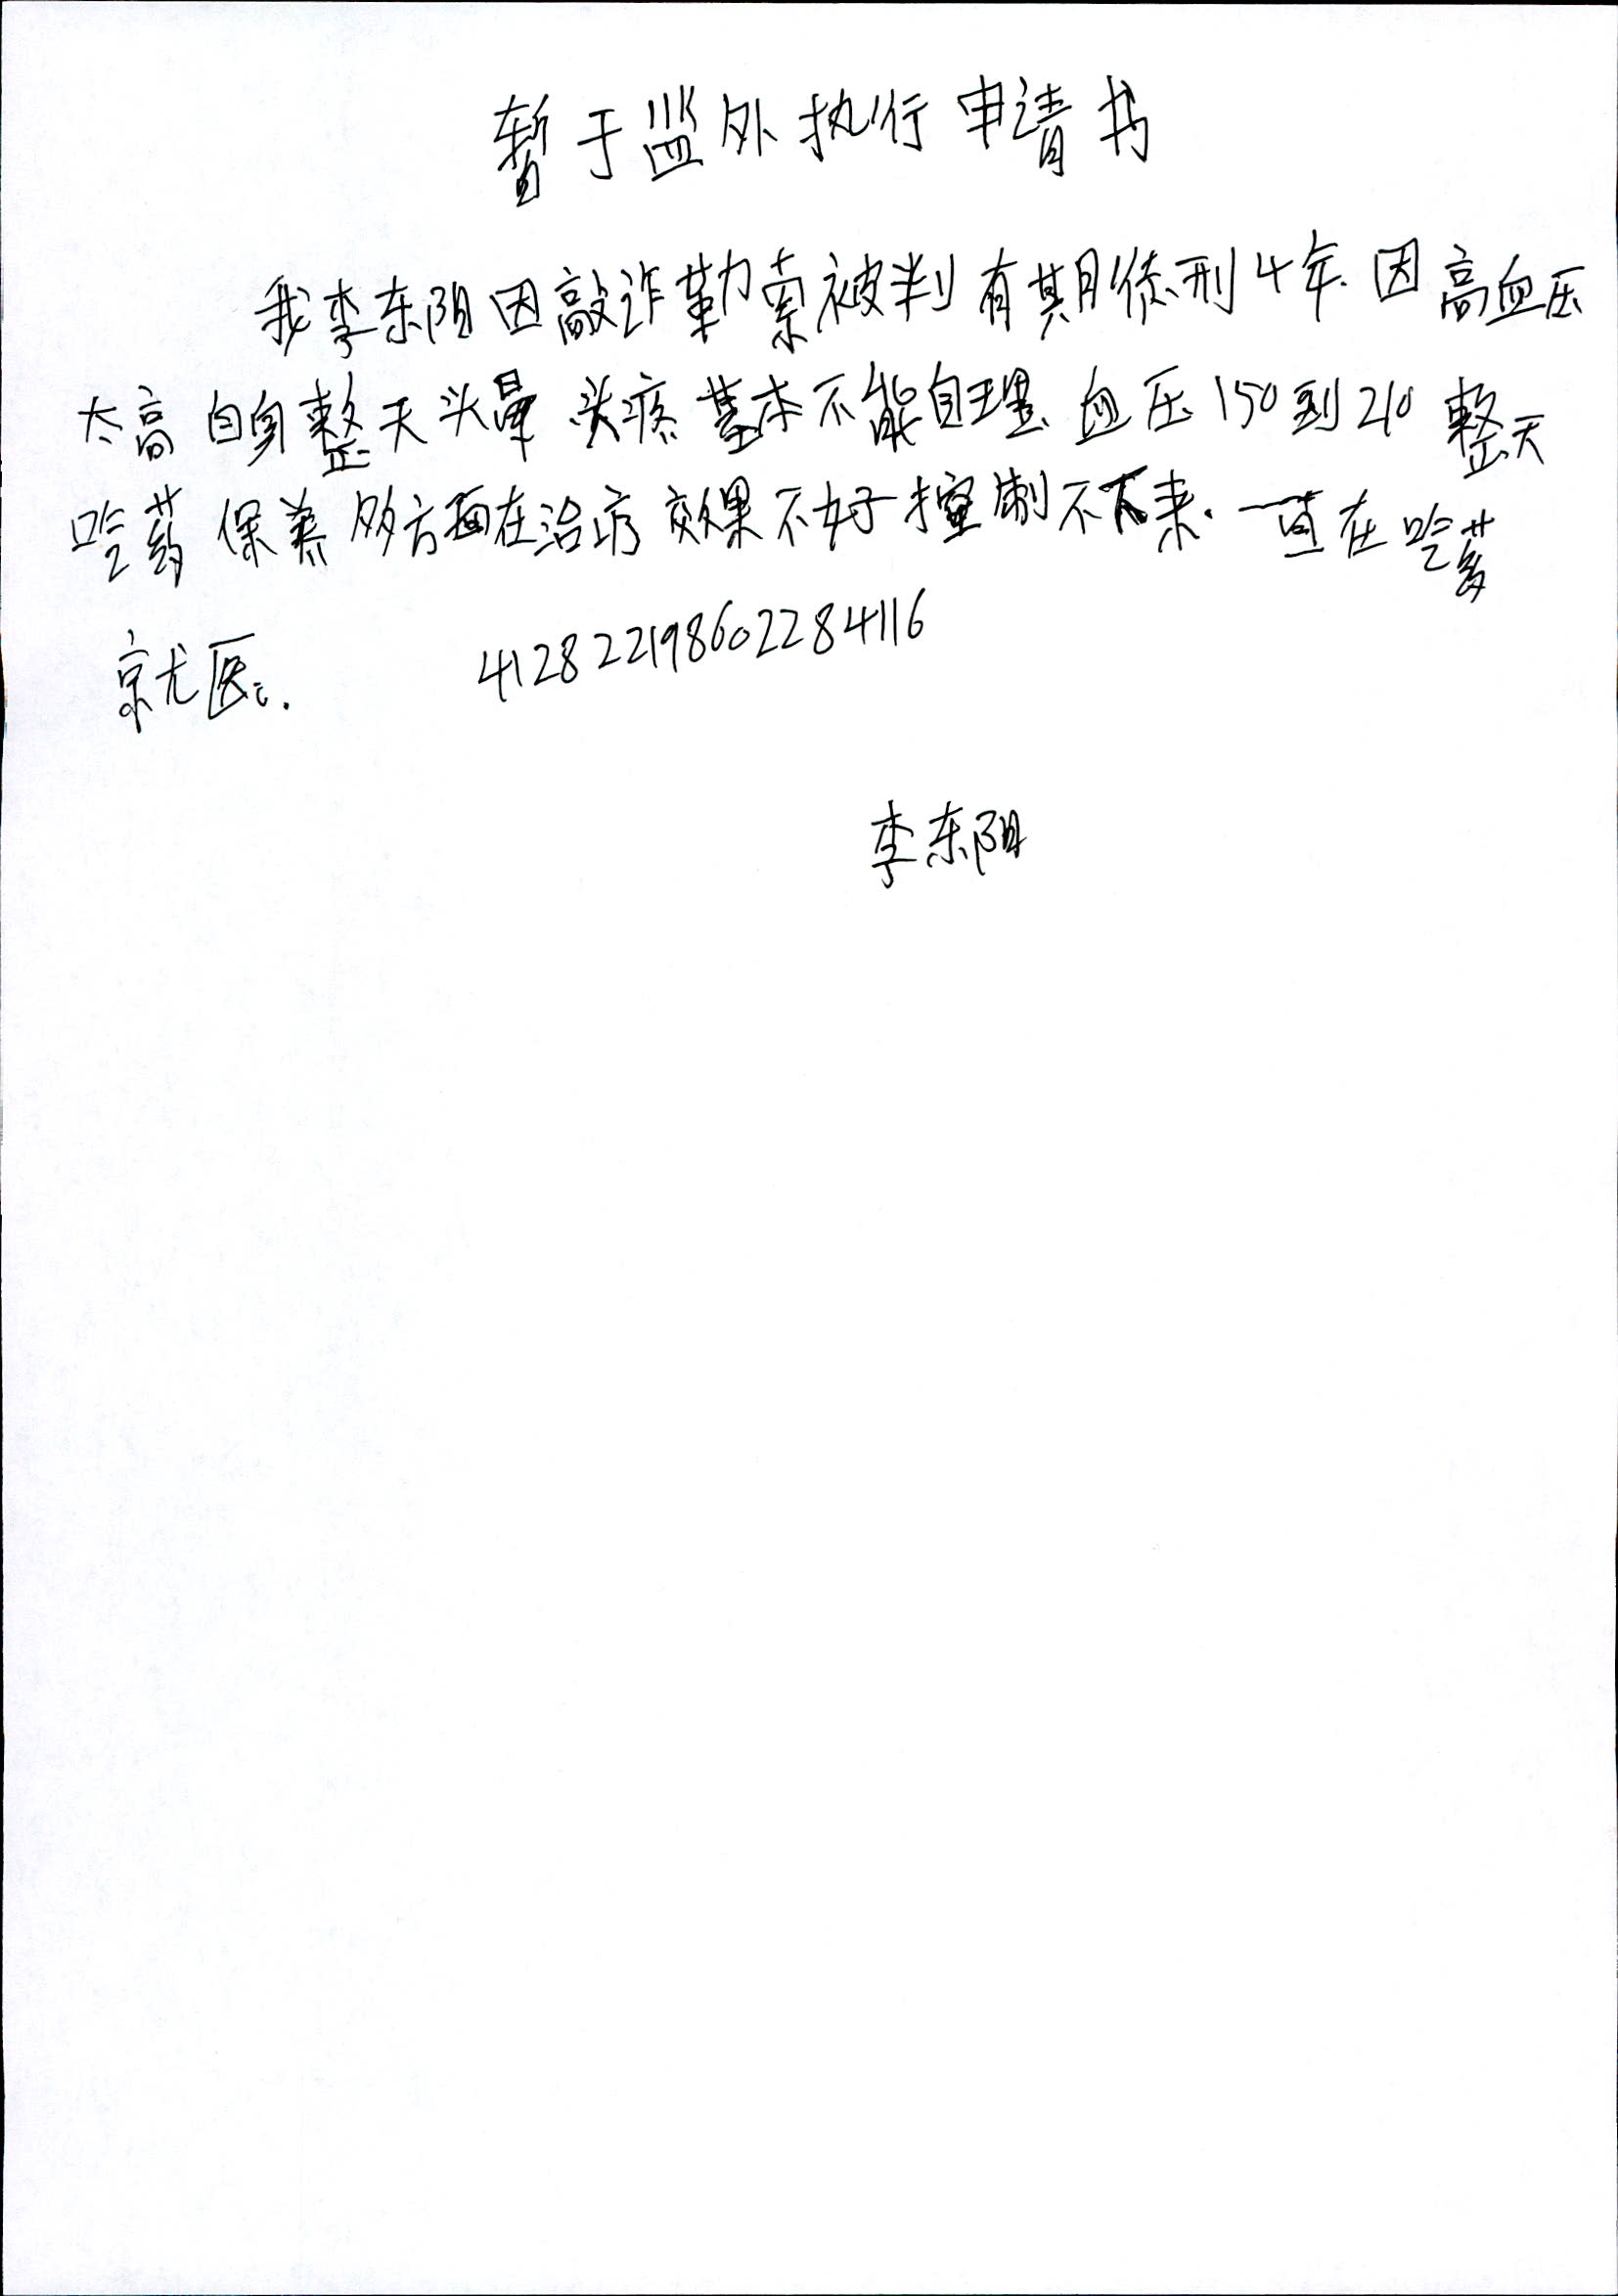 暂于监外执行申请书
我李东阳因敲诈勒索被判有期徒刑4年.因高血压
太高 自身整天头晕 头疼 基本不能自理.血压150到210 整天
吃药 保养 多方面在治疗 效果不好 控制不下来.一直在吃药
就医. 412822198602284116
李东阳